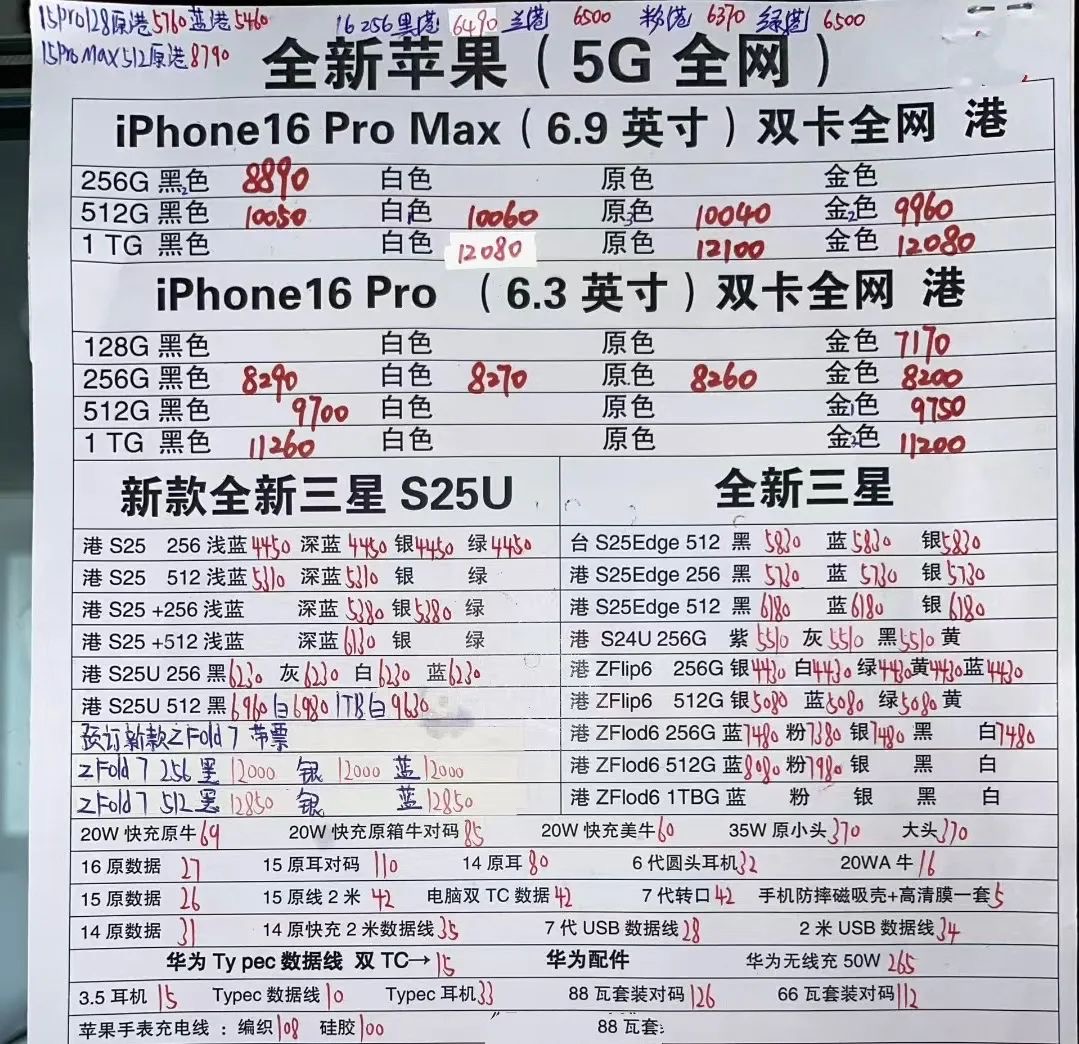 15Pro128原港5760蓝港5460 16 256黑港6490 兰港 6500 粉港 6370 绿港 6500
15ProMax512原港8790
全新苹果（5G 全网）
iPhone16 Pro Max（6.9 英寸）双卡全网 港
256G 黑2色 8890 白色 原色 金色
512G 黑色 10050 白1色 10060 原3色 10040 金2色 9960
1 TG 黑色 白色 12080 原色 12100 金色 12080
iPhone16 Pro （6.3 英寸）双卡全网 港
128G 黑色 白色 原色 金色 7170
256G 黑色 8290 白色 8270 原色 8260 金色 8200
512G 黑色 9700 白色 原色 金1色 9750
1 TG 黑色 11260 白色 原色 金2色 11200
新款全新三星 S25U
港 S25 256 浅蓝 4450 深蓝 4450 银 4450 绿 4450
港 S25 512 浅蓝 5310 深蓝 5310 银 绿
港 S25 +256 浅蓝 深蓝 5380 银 5380 绿
港 S25 +512 浅蓝 深蓝 6130 银 绿
港 S25U 256 黑 6230 灰 6230 白 6230 蓝 6230
港 S25U 512 黑 6960 白 6980 1TB白 9630
预订新款ZFold 7 带票
ZFold 7 256 黑 12000 银 12000 蓝 12000
ZFold 7 512 黑 12850 银 蓝 12850
全新三星
台 S25Edge 512 黑 5830 蓝 5830 银 5830
港 S25Edge 256 黑 5730 蓝 5730 银 5730
港 S25Edge 512 黑 6180 蓝 6180 银 6180
港 S24U 256G 紫 5510 灰 5510 黑 5510 黄
港 ZFlip6 256G 银 4430 白 4430 绿 4430 黄 4430 蓝 4430
港 ZFlip6 512G 银 5080 蓝 5080 绿 5080 黄
港 ZFlod6 256G 蓝 7480 粉 7380 银 7480 黑 白 7480
港 ZFlod6 512G 蓝 8080 粉 7980 银 黑 白
港 ZFlod6 1TBG 蓝 粉 银 黑 白
20W 快充原牛 69 20W 快充原箱牛对码 85 20W 快充美牛 60 35W 原小头 370 大头 370
16 原数据 27 15 原耳对码 110 14 原耳 80 6 代圆头耳机 32 20WA 牛 16
15 原数据 26 15 原线 2 米 42 电脑双 TC 数据 42 7 代转口 42 手机防摔磁吸壳+高清膜一套 5
14 原数据 31 14 原快充 2 米数据线 35 7 代 USB 数据线 28 2 米 USB 数据线 34
华为 Ty pec 数据线 双 TC→ 15 华为配件 华为无线充 50W 265
3.5 耳机 15 Typec 数据线 10 Typec 耳机 33 88 瓦套装对码 126 66 瓦套装对码 112
苹果手表充电线 ：编织 108 硅胶 100 88 瓦套